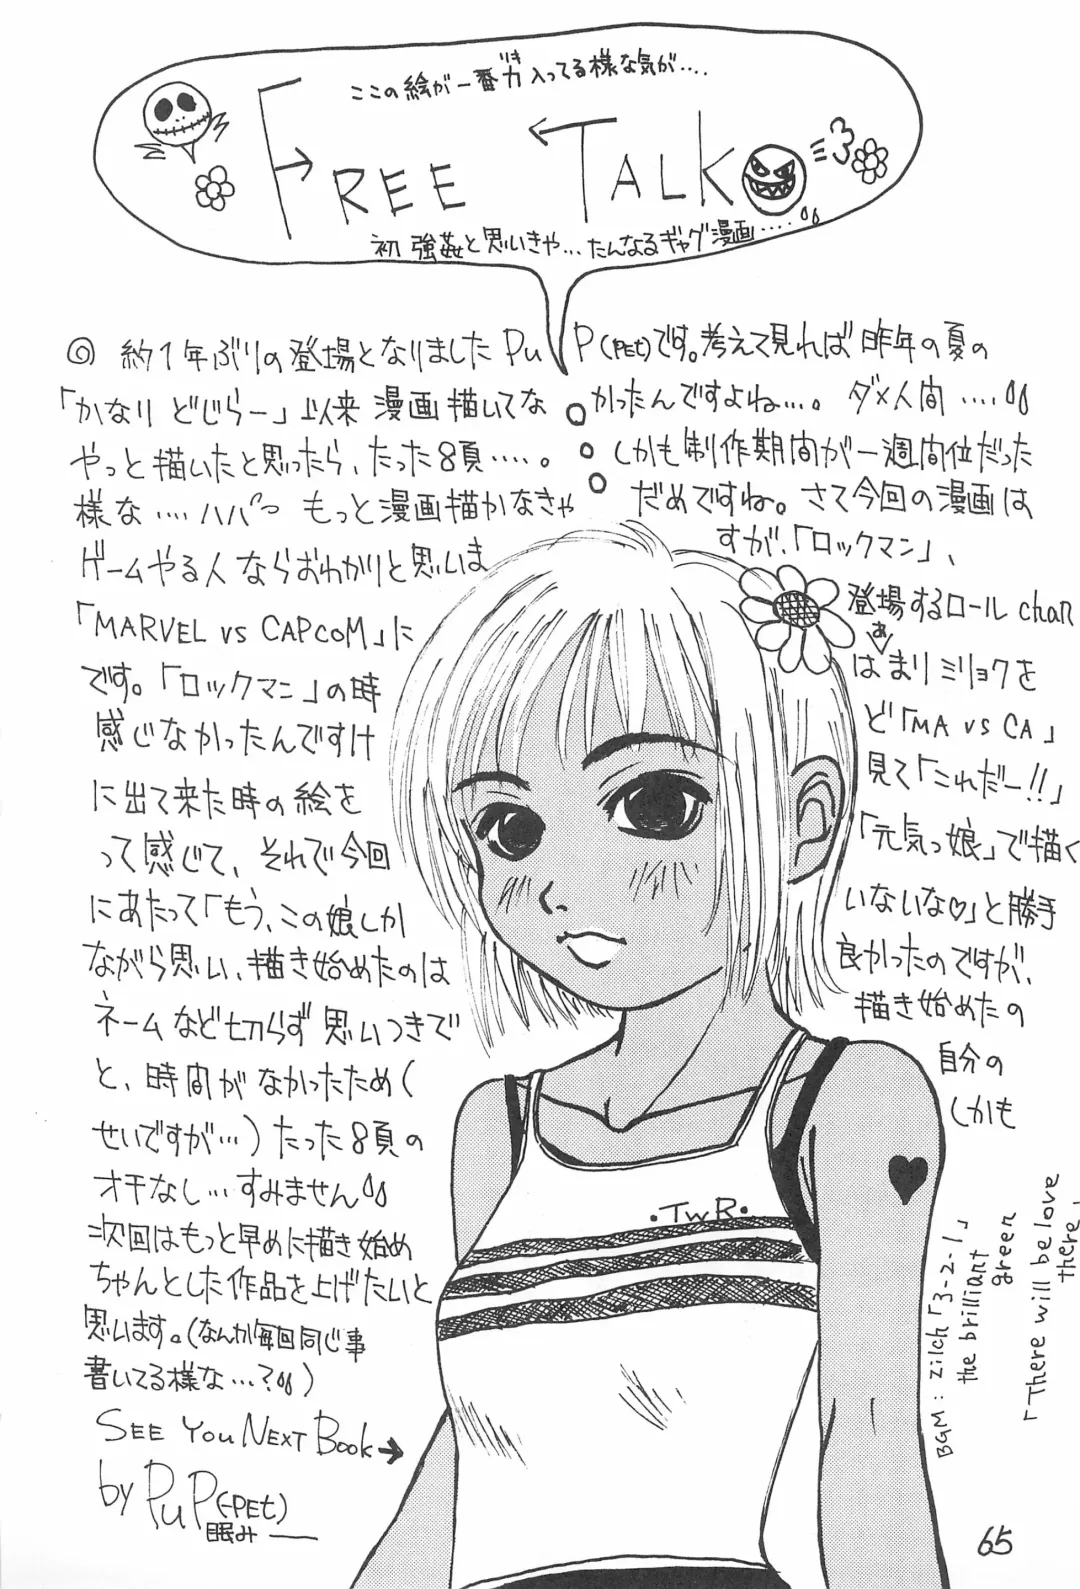 ここの絵が一番力入ってる様な気が....
FREE TALK
初 強姦と思いきや...たんなるギャグ漫画.....
◎ 約1年ぶりの登場となりました PuP(PEt)です。考えて見れば昨年の夏の
「かなり どじらー」以来 漫画描いてなかったんですよね...。 ダメ人間 ....
やっと描いたと思ったら、たった8頁.....。しかも制作期間が一週間位だった
様な.... ハハハっ もっと漫画描かなきゃだめですね。さて今回の漫画は
ゲームやる人ならおわかりと思いますが、「ロックマン」、
「MARVEL vs CAPCOM」に登場するロール chan
です。「ロックマン」の時はあまりミリョクを
感じなかったんですけど「MA vs CA」
に出て来た時の絵を見て「これだー!!」
って感じて、それで今回「元気っ娘」で描く
にあたって「もう、この娘しかいないな♡」と勝手
ながら思い、描き始めたのは良かったのですが、
ネームなど切らず思いつきで描き始めたの
と、時間がなかったため(自分の
せいですが...)たった8頁のしかも
オチなし...すみません
次回はもっと早めに描き始め
ちゃんとした作品を上げたいと
思います。(なんか毎回同じ事
書いてる様な...?)
SEE YOU NEXT BOOK→
by PuP(-PEt)
眠み——
・TWR・
BGM: zilch「3-2-1」
the brilliant green
「There will be love there」
65